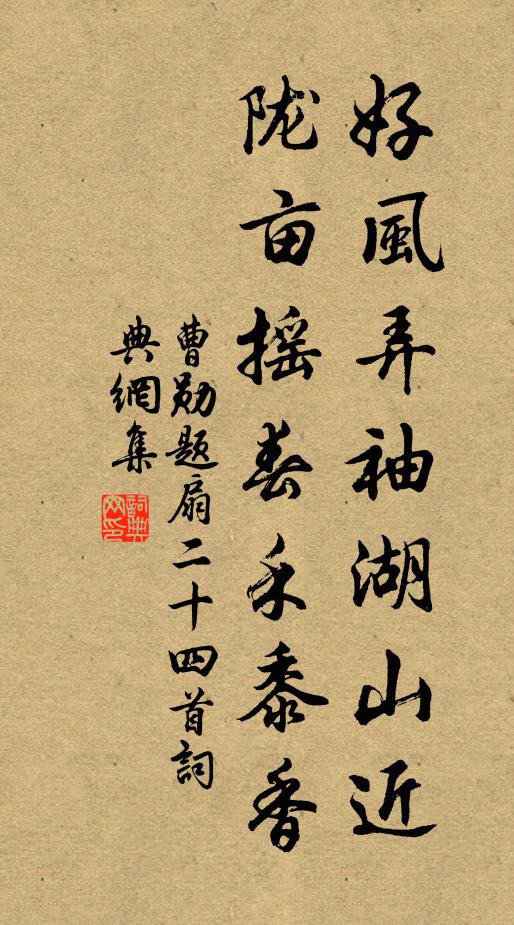 好風弄袖湖山近
陇亩摇春禾黍香
曹勋题扇二十四首詞
典網集
詞典
网印